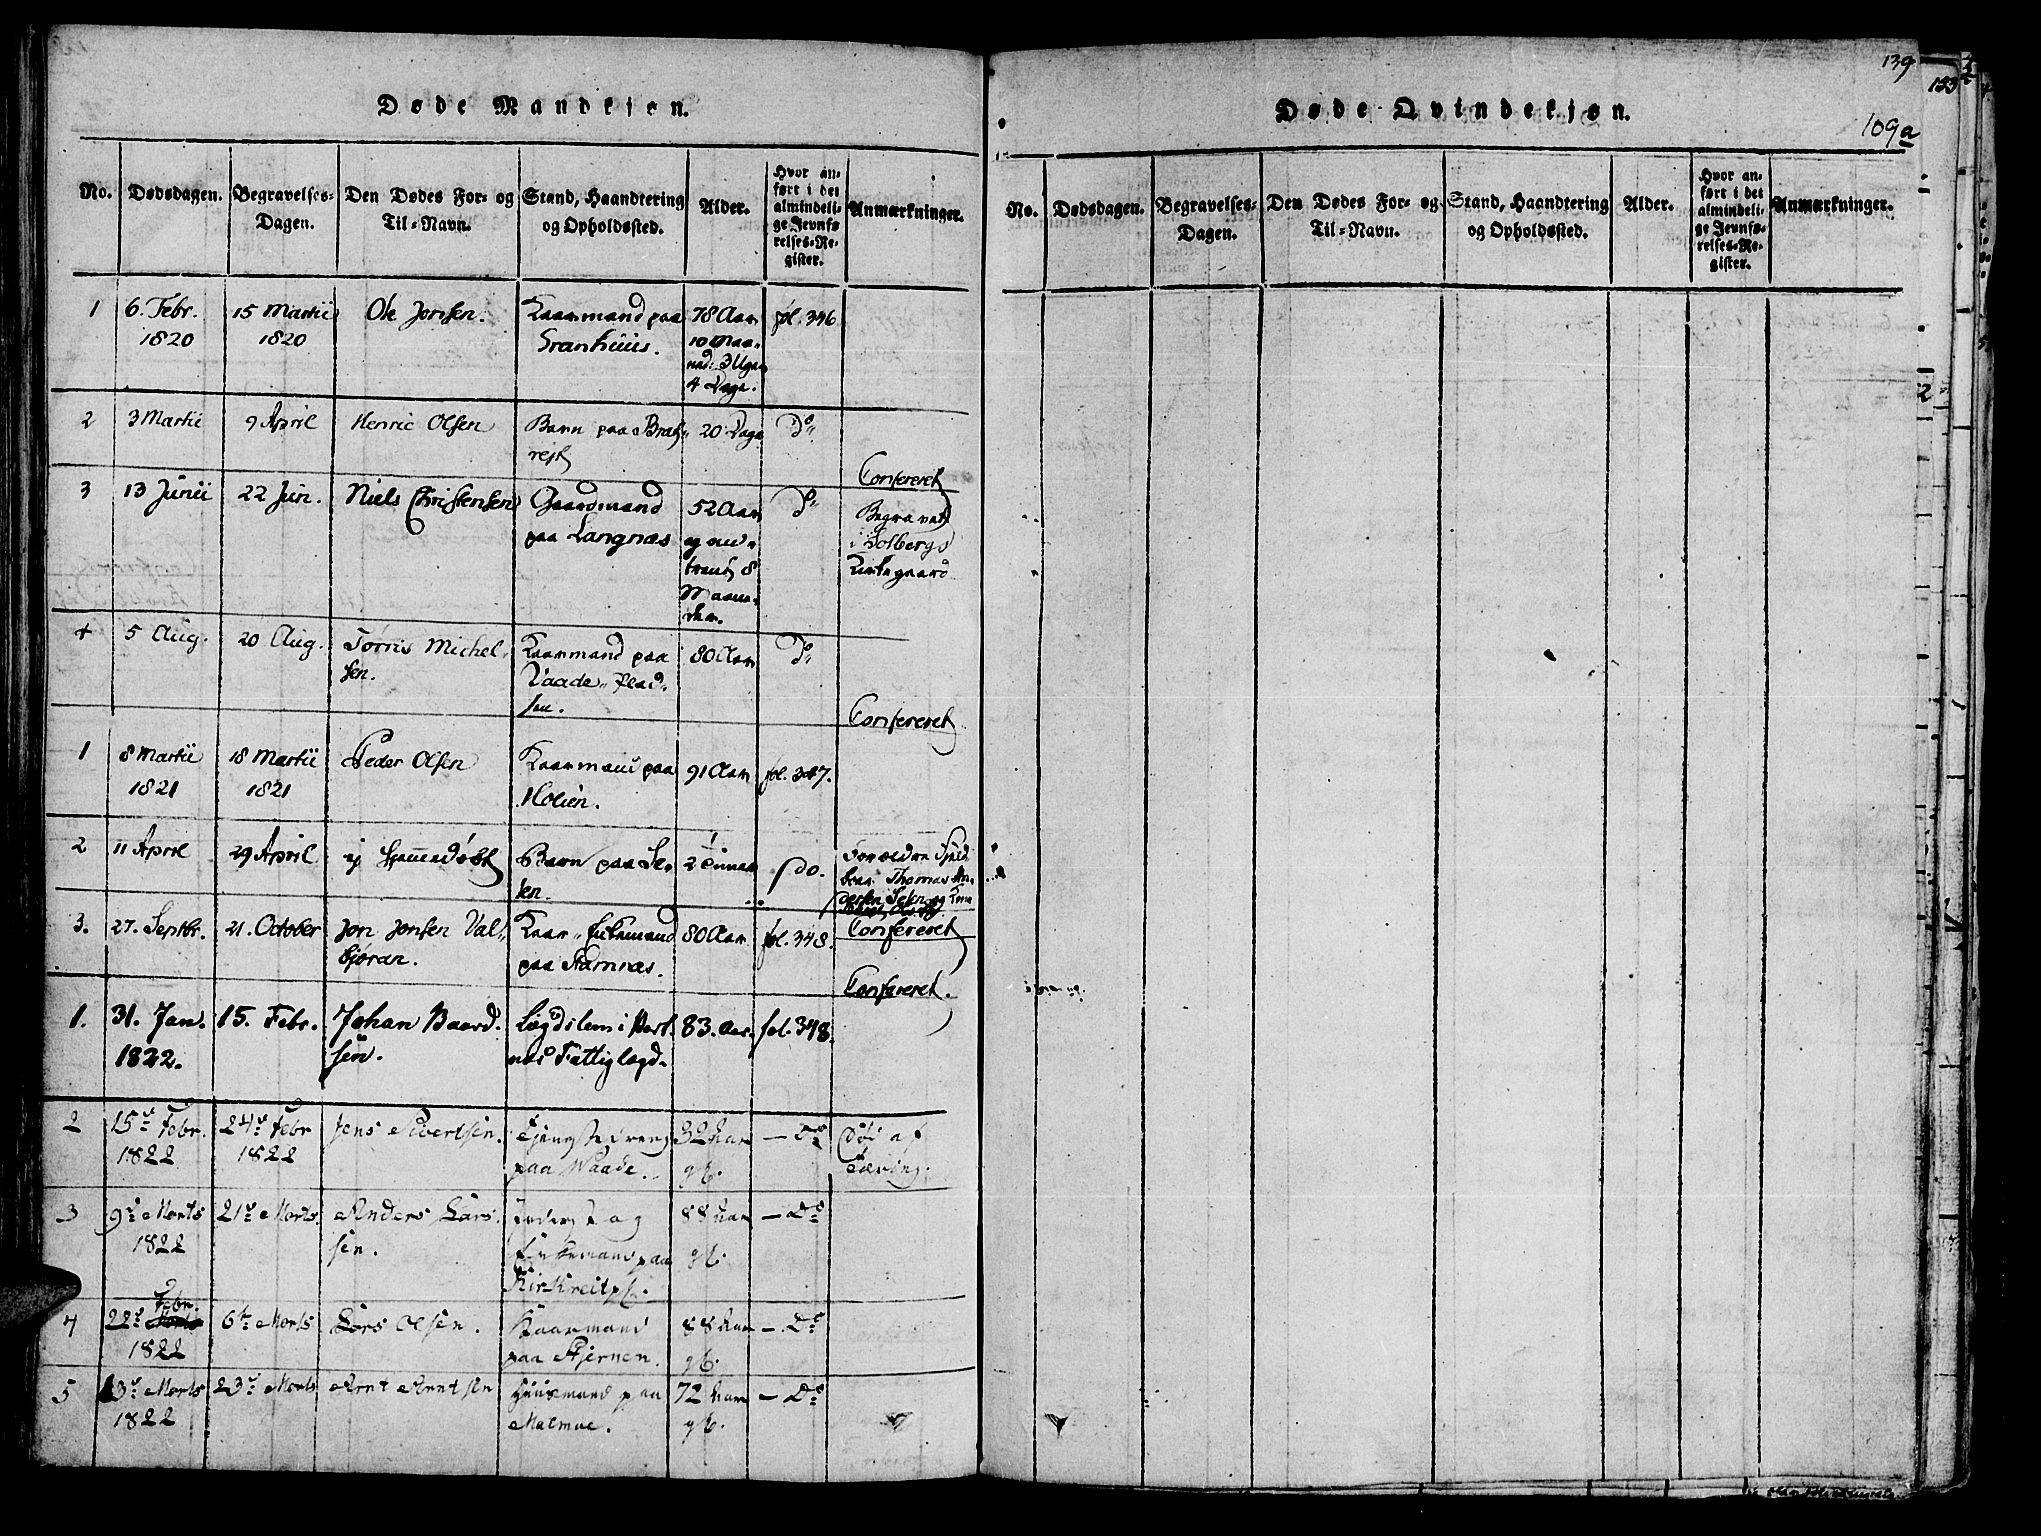 Døde Mandkjøn.
No.
Dødsdagen.
Begravelses-
Dagen.
Den Dødes For- og
Til-Navn.
Stand, Haandtering
og Opholdssted.
Alder.
Hvor an-
ført i det
almindeli-
ge Jevnfø-
relses-Re-
gister.
Anmærkninger.
1
6. Febr.
1820
15 Martii
1820
Ole Jonsen.
Kaarmand paa
Granhuus.
78 Aar
10 Maa-
ned: 3 Uger
4 Dage.
fol. 346
2
3 Martii
9 April
Henric Olsen
Barn paa
20 Dage
Do
Confereret
3
13 Junii
22 Jun.
Niels Christensen
Gaardmand
paa Langnæs
52 Aar
og
8
Maane-
der.
Do
Begravet
i Solbergs
Kirkegaard
4
5 Aug.
20 Aug.
Tørris Michel-
sen.
Kaarmand paa
Vaade-Plad-
sen.
80 Aar
Do
Confereret
1
8 Martii
1821
18 Martii
1821
Peder Olsen
Kaarmand paa
Holien.
91 Aar
fol. 347.
2
11 April
29 April
ej hjemmedøbt
Barn paa Se-
sen.
2 Timer
do.
Forældre
Thomas An-
dersen
3.
27. Septbr.
21. October
Jon Jonsen Val-
bjøran.
Kaar- Enkemand
paa Stamnæs.
80 Aar
fol. 348.
Confereret
Confereret.
1.
31. Jan.
1822.
15. Febr.
Johan Baard-
sen.
Lægdslem i
næs Fattiglægd.
83. Aar.
fol. 348.
2
15de Febr.
1822
24de Febr
1822
Jens Sivertsen.
Tjenestedreng
paa Waade.
32 Aar
gl.
— Do
Død af
Tæring.
3
9de Marts
1822
21de Marts
Anders Lars-
sen.
og
Enkemand paa
Kirkreitpl.
88 Aar
gl.
— Do
4
22de Febr.
1822
6te Marts
Lars Olsen.
Kaarmand
paa Stjernen.
88 Aar
gl.
— Do
5
13de Marts
1822
23de Marts
Arnt Arntsen
Huusmand paa
Malmue.
72 Aar
gl.
— Do
139
133
Døde Qvindekjøn.
109a
No.
Dødsdagen.
Begravelses-
Dagen.
Den Dødes For- og
Til-Navn.
Stand, Haandtering
og Opholdssted.
Alder.
Hvor an-
ført i det
almindeli-
ge Jevnfø-
relses-Re-
gister.
Anmærkninger.